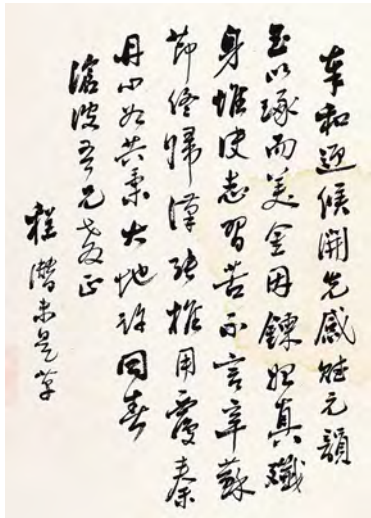 奉和迎候開先感賦元韻
玉以琢而美金因鍊始真殲
身惟決志習苦不言辛蘇
節終歸漢張椎用覆秦
丹心如共秉大地許同春
滄波吾兄教正
程潛未是草